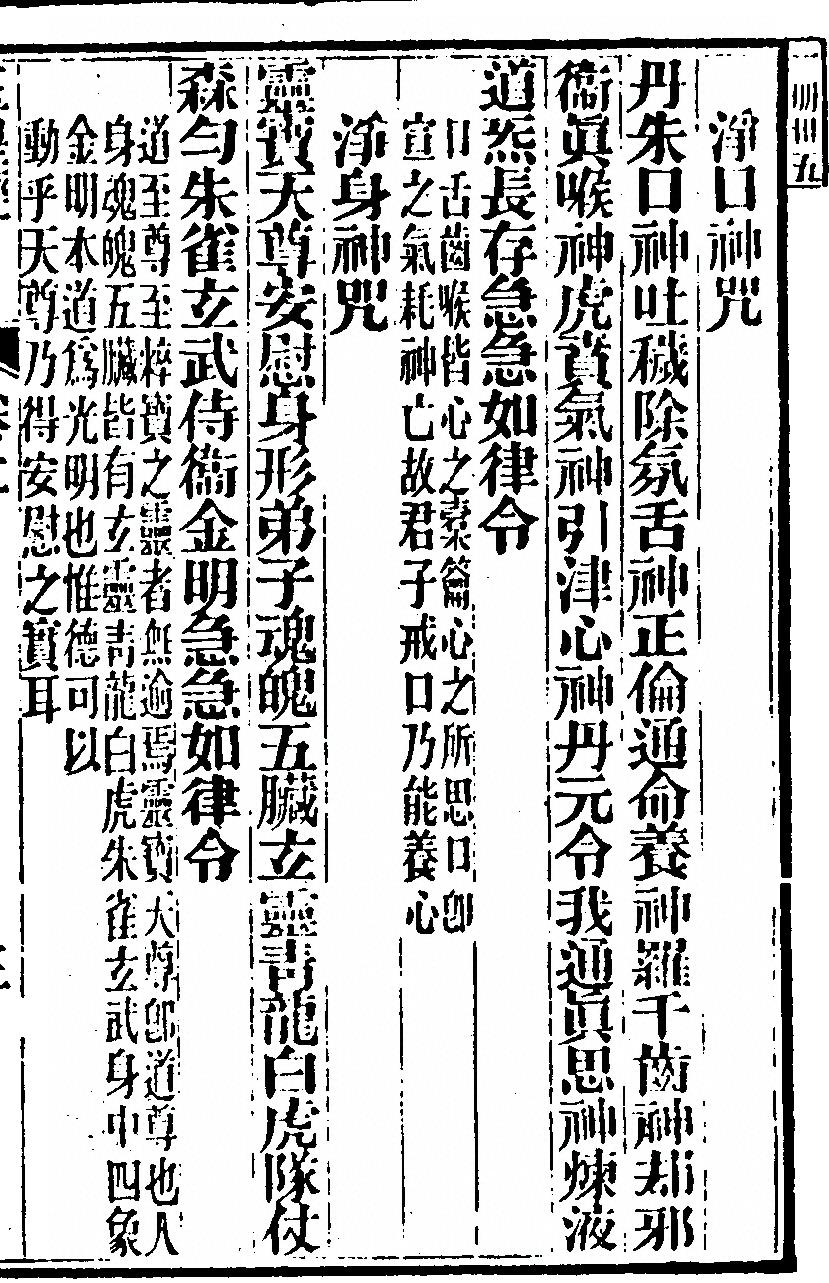 淨口神咒
丹朱口神吐穢除氛舌神正倫通命養神羅千齒神却邪
衞眞喉神虎賁氣神引津心神丹元令我通眞思神煉液
道炁長存急急如律令
口舌齒喉皆心之橐籥心之所思口卽
宣之氣耗神亡故君子戒口乃能養心
淨身神咒
靈寶天尊安慰身形弟子魂魄五臟玄靈青龍白虎隊仗
森勻朱雀玄武侍衞金明急急如律令
道至尊至粹寶之靈者無逾焉靈寶天尊卽道尊也人
身魂魄五臟皆有玄靈青龍白虎朱雀玄武身中四象
金明本道爲光明也惟德可以
動乎天尊乃得安慰之實耳